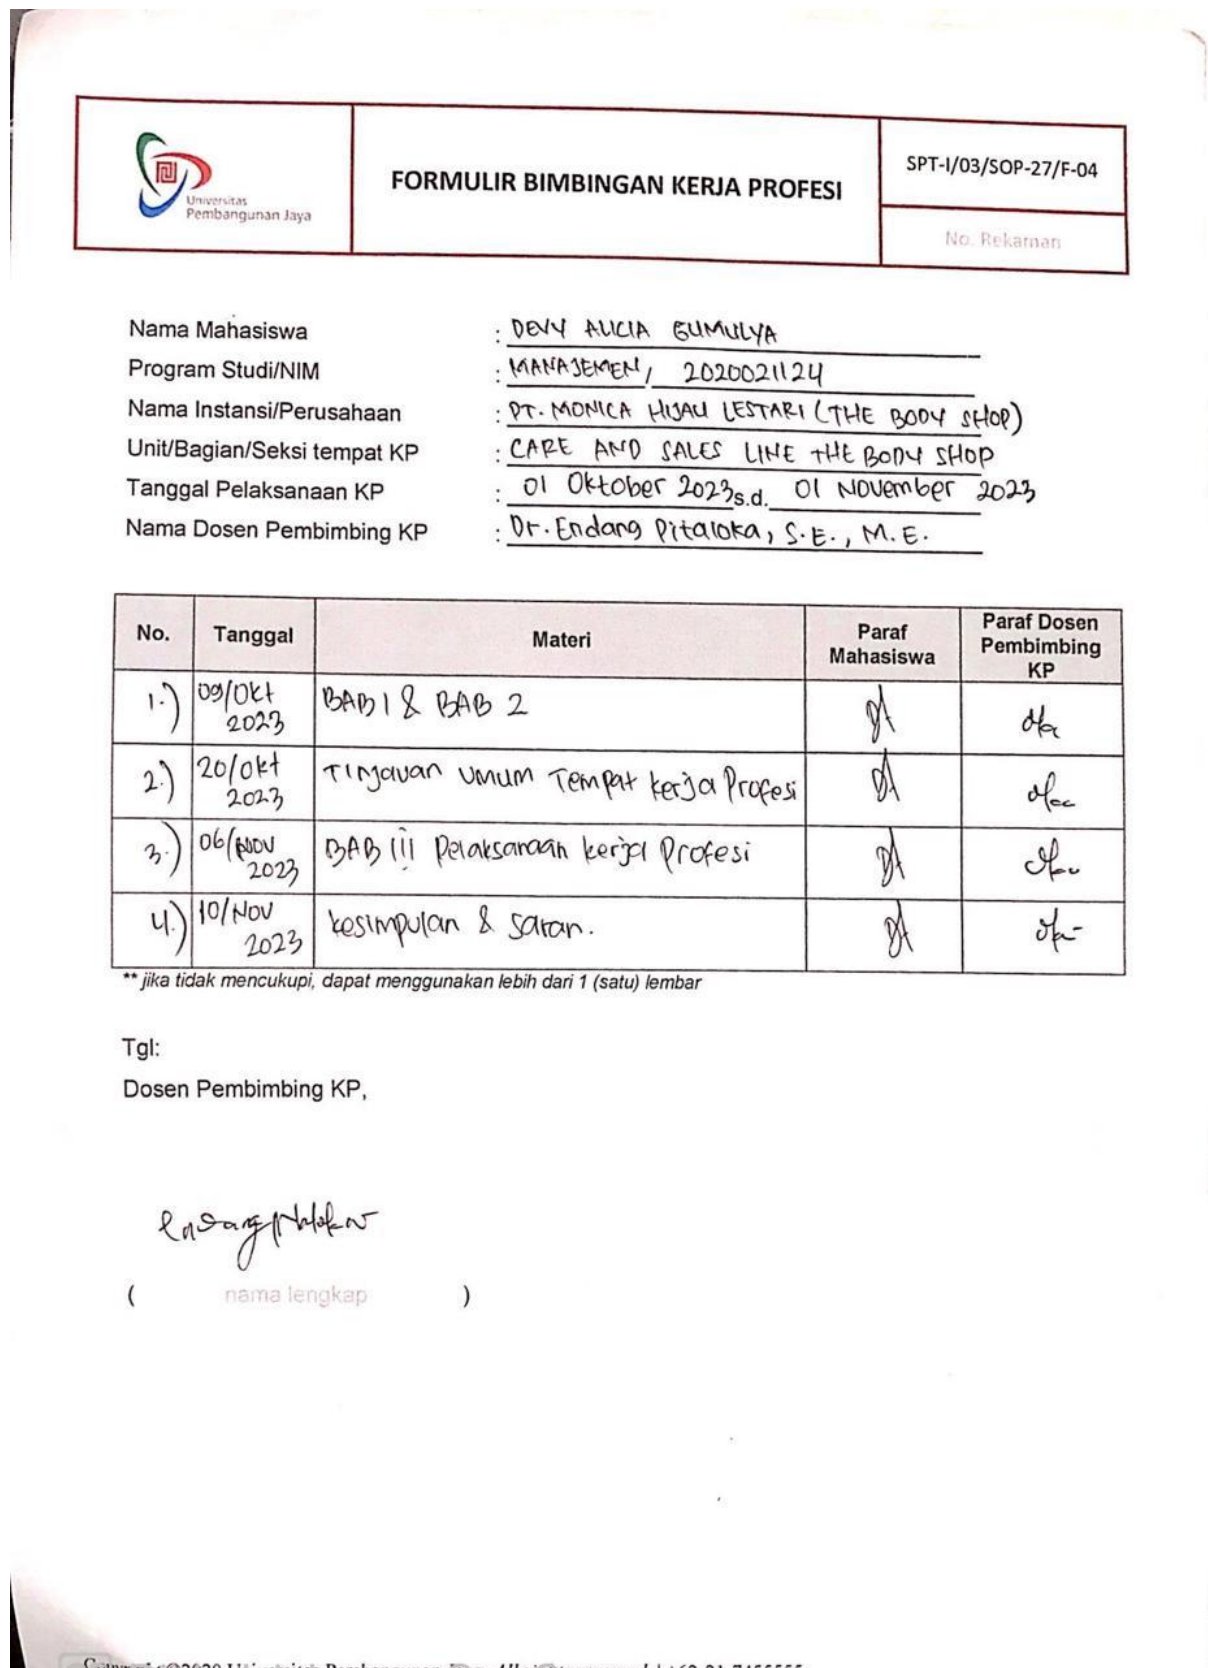 Universitas
Pembangunan Jaya
FORMULIR BIMBINGAN KERJA PROFESI
SPT-I/03/SOP-27/F-04
No. Rekaman
Nama Mahasiswa : DEVY ALICIA GUMULYA
Program Studi/NIM : MANAJEMEN, 2020021124
Nama Instansi/Perusahaan : PT. MONICA HIJAU LESTARI (THE BODY SHOP)
Unit/Bagian/Seksi tempat KP : CARE AND SALES LINE THE BODY SHOP
Tanggal Pelaksanaan KP : 01 Oktober 2023 s.d. 01 November 2023
Nama Dosen Pembimbing KP : Dr. Endang Pitaloka, S.E., M.E.
No. Tanggal Materi Paraf Mahasiswa Paraf Dosen Pembimbing KP
1.) 09/Okt 2023 BAB 1 & BAB 2
2.) 20/Okt 2023 Tinjauan Umum Tempat Kerja Profesi
3.) 06/Nov 2023 BAB III Pelaksanaan kerja Profesi
4.) 10/Nov 2023 kesimpulan & saran.
** jika tidak mencukupi, dapat menggunakan lebih dari 1 (satu) lembar
Tgl:
Dosen Pembimbing KP,
( nama lengkap )